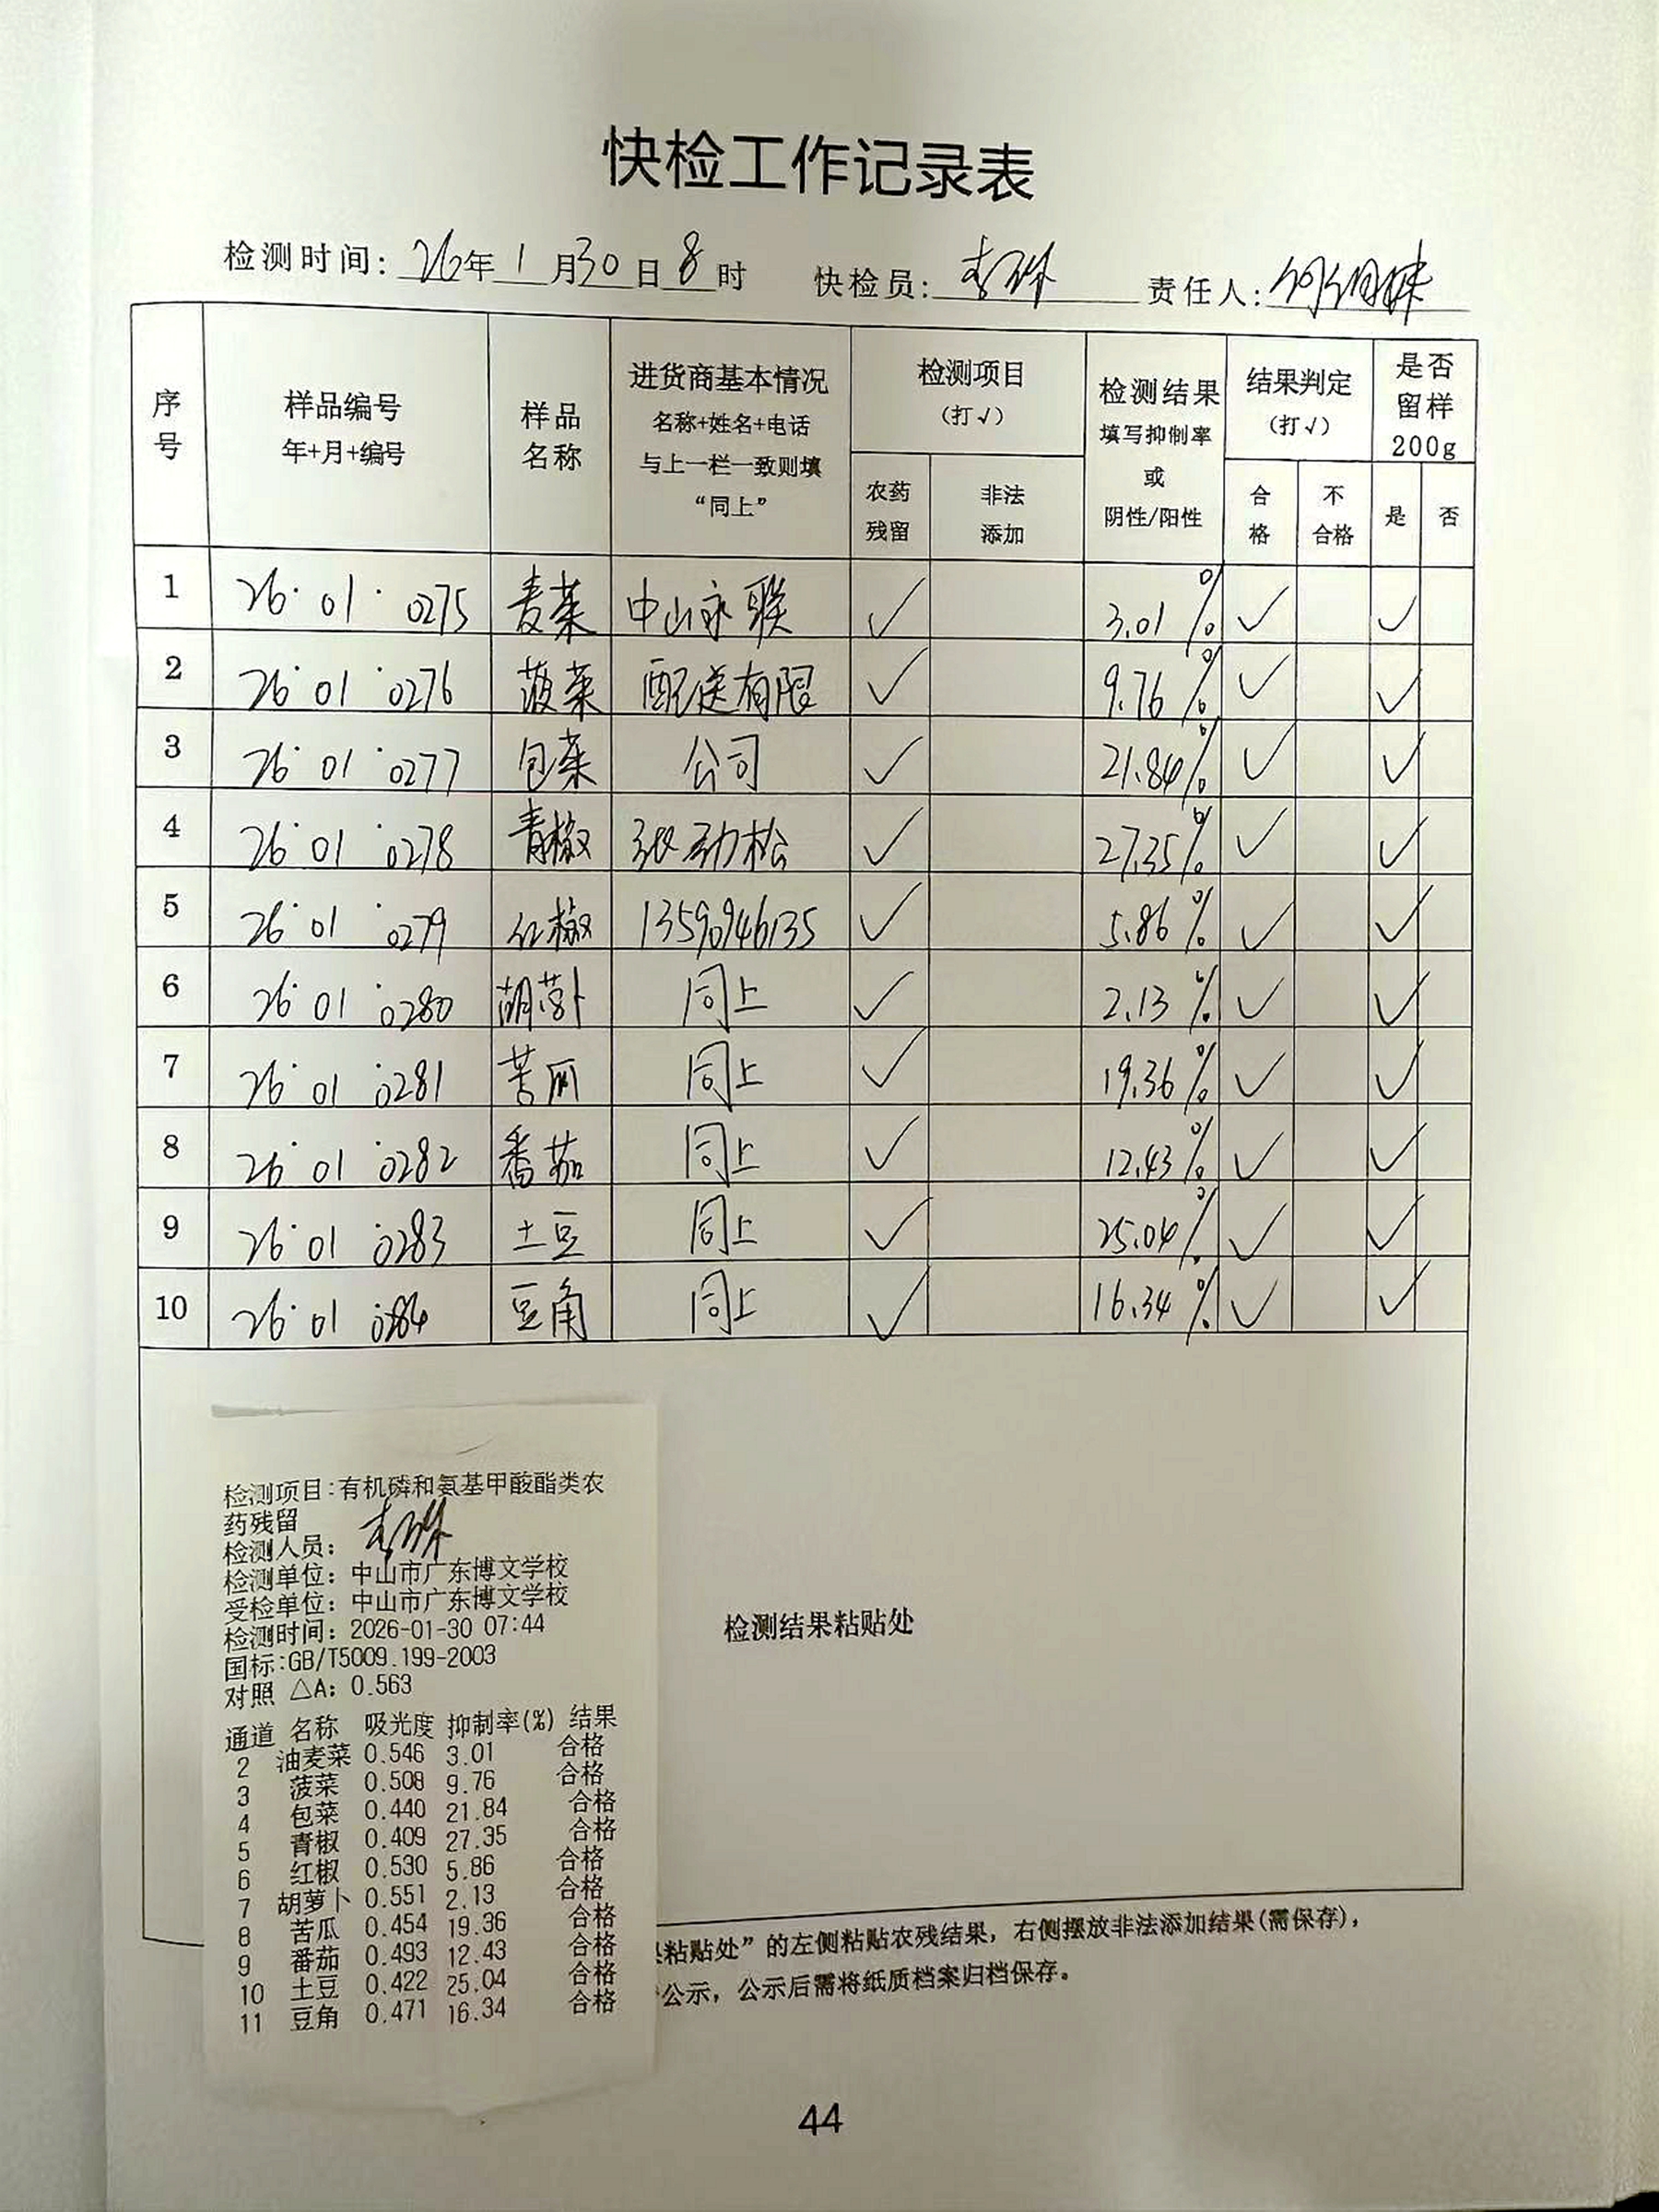 快检工作记录表
检测时间: 26年 1 月30日 8 时 快检员: 责任人:
序号 样品编号 年+月+编号 样品名称 进货商基本情况 名称+姓名+电话 与上一栏一致则填“同上” 检测项目 (打√) 农药残留 非法添加 检测结果 填写抑制率 或 阴性/阳性 结果判定 (打√) 合格 不合格 是否留样200g 是 否
1 26·01·0275 麦菜 中山永联 ✓ 3.01% ✓ ✓
2 26·01·0276 菠菜 配送有限 ✓ 9.76% ✓ ✓
3 26·01·0277 包菜 公司 ✓ 21.84% ✓ ✓
4 26·01·0278 青椒 张劲松 ✓ 27.35% ✓ ✓
5 26·01·0279 红椒 13590946135 ✓ 5.86% ✓ ✓
6 26·01·0280 胡萝卜 同上 ✓ 2.13% ✓ ✓
7 26·01·0281 苦瓜 同上 ✓ 19.36% ✓ ✓
8 26·01·0282 番茄 同上 ✓ 12.43% ✓ ✓
9 26·01·0283 土豆 同上 ✓ 25.04% ✓ ✓
10 26·01·0284 豆角 同上 ✓ 16.34% ✓ ✓
检测项目:有机磷和氨基甲酸酯类农
药残留
检测人员:
检测单位: 中山市广东博文学校
受检单位: 中山市广东博文学校
检测时间: 2026-01-30 07:44
国标:GB/T5009.199-2003
对照 △A: 0.563
通道 名称 吸光度 抑制率(%) 结果
2 油麦菜 0.546 3.01 合格
3 菠菜 0.508 9.76 合格
4 包菜 0.440 21.84 合格
5 青椒 0.409 27.35 合格
6 红椒 0.530 5.86 合格
7 胡萝卜 0.551 2.13 合格
8 苦瓜 0.454 19.36 合格
9 番茄 0.493 12.43 合格
10 土豆 0.422 25.04 合格
11 豆角 0.471 16.34 合格
检测结果粘贴处
粘贴处”的左侧粘贴农残结果，右侧摆放非法添加结果(需保存)，
公示，公示后需将纸质档案归档保存。
44